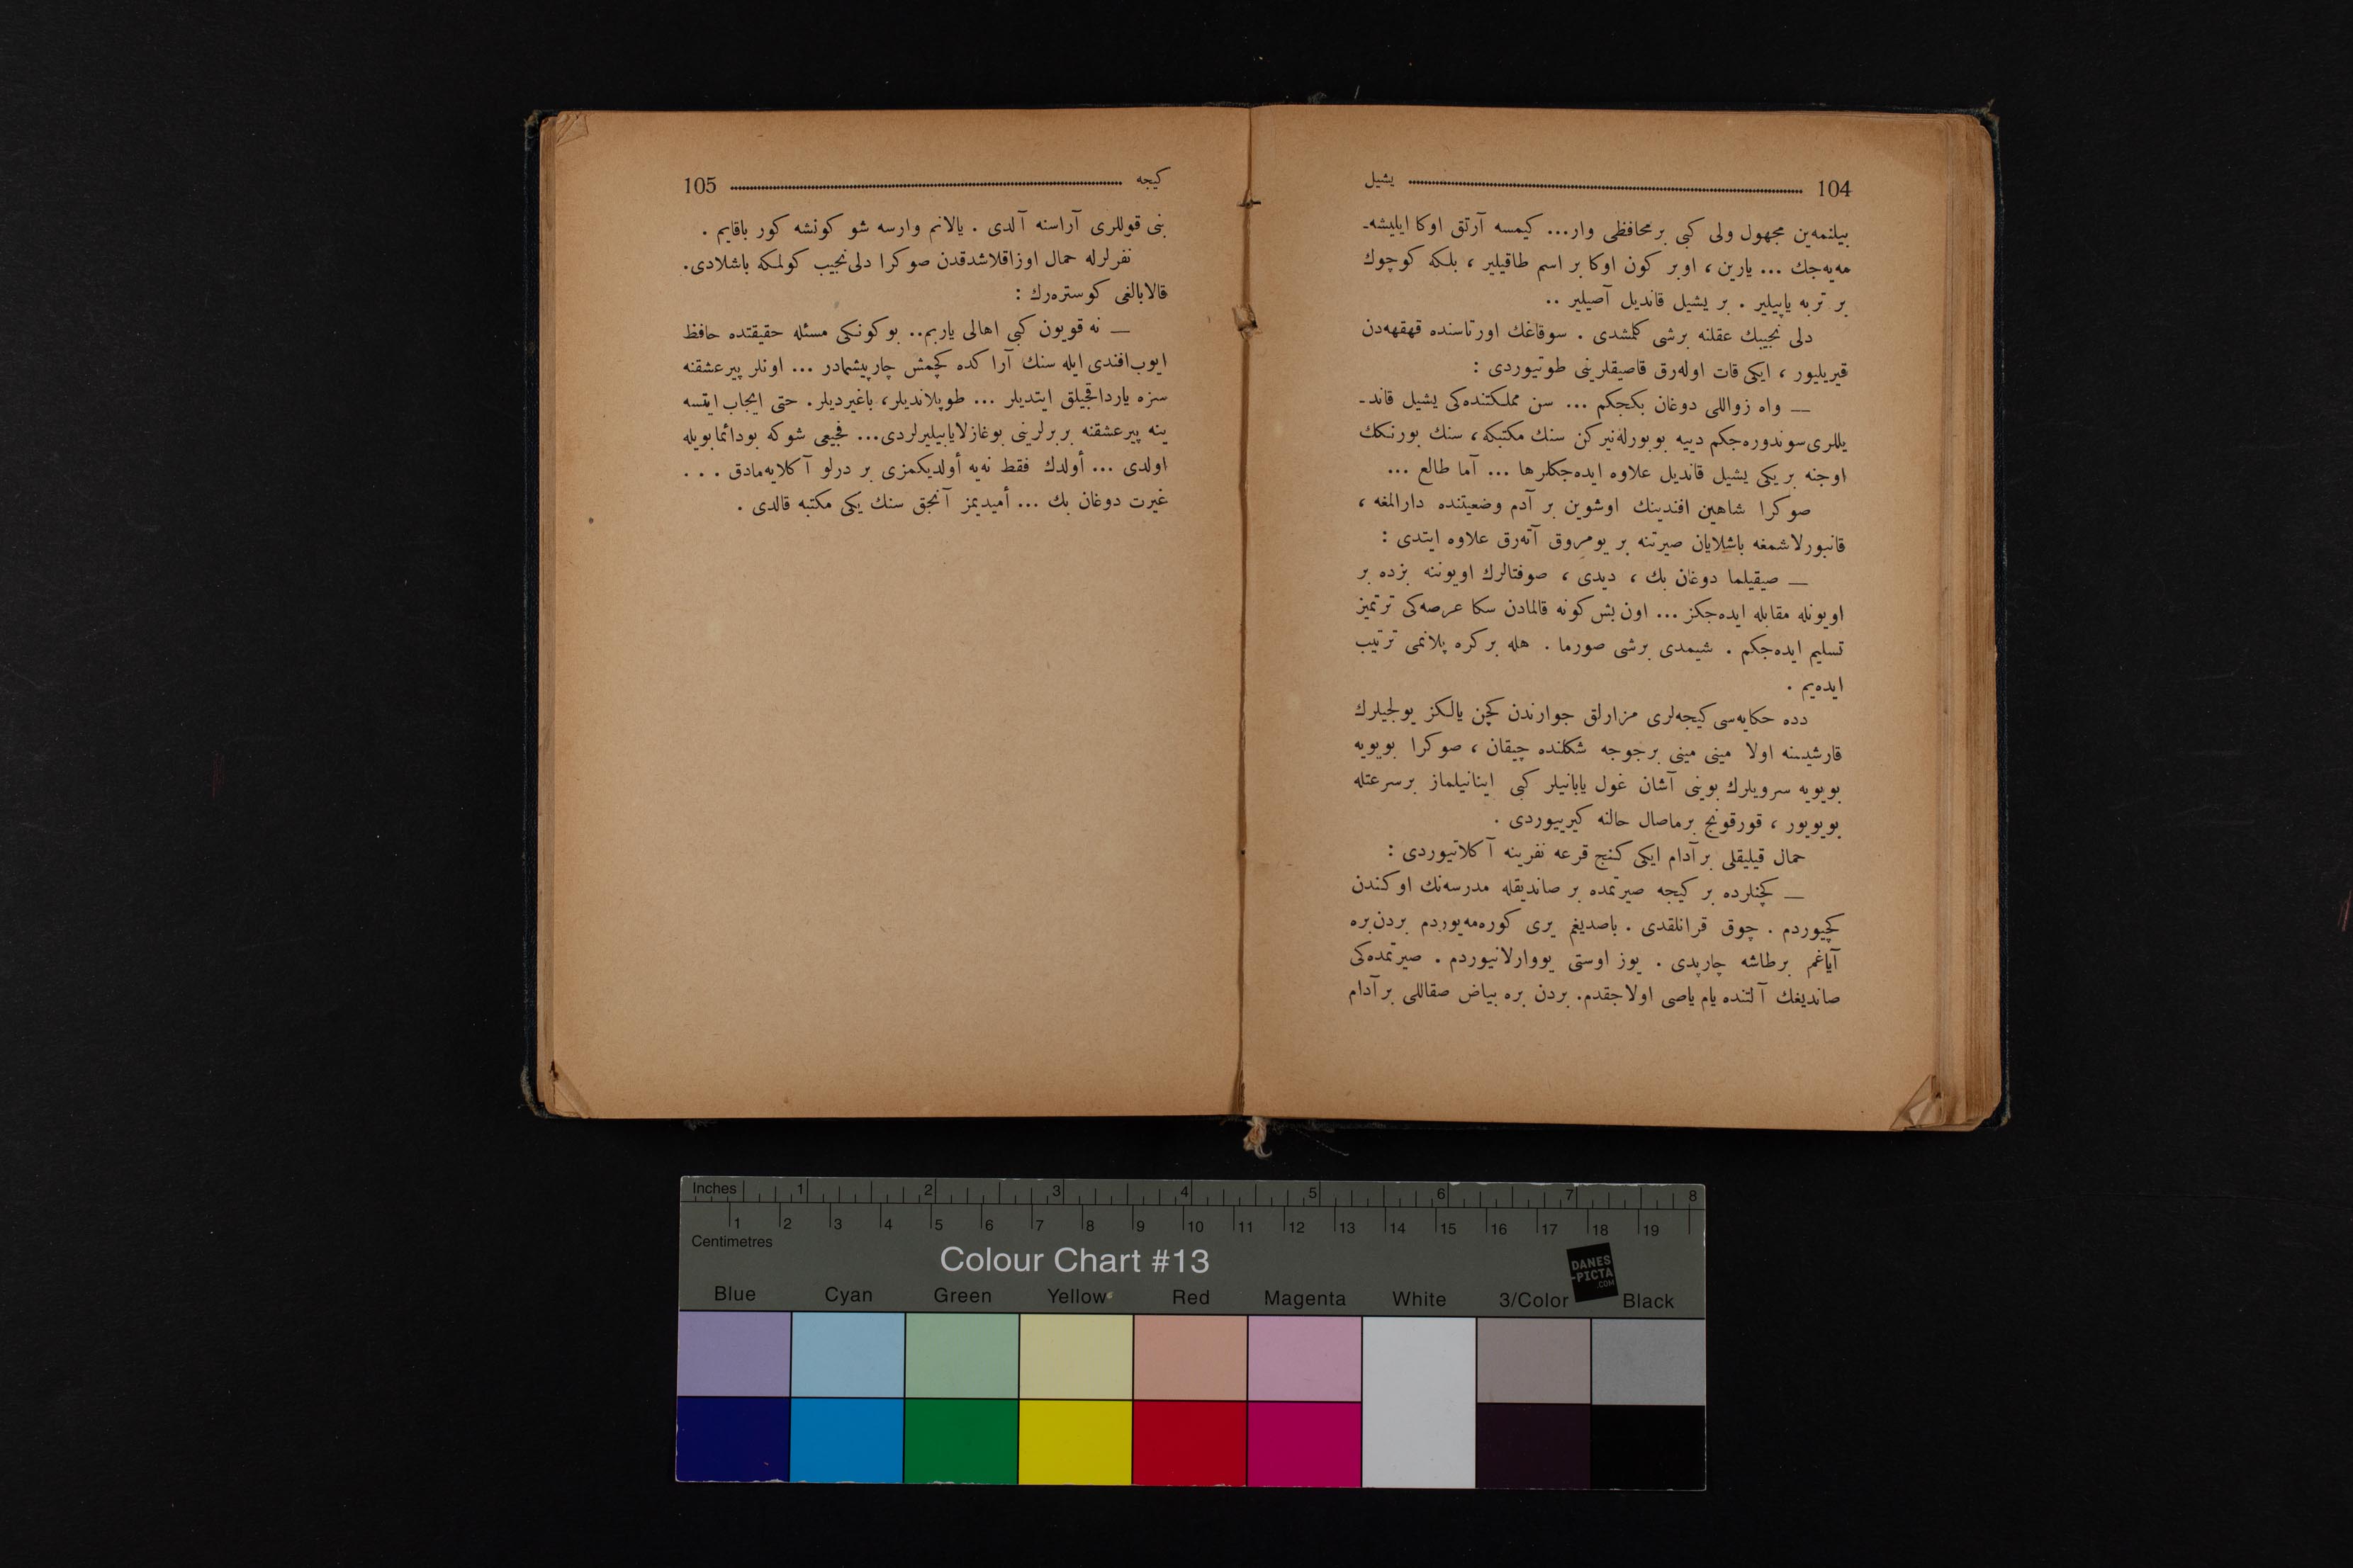 104 یشیل
بیلنمه‌ین مجهول ولی کبی بر محافظی وار... کیمسه آرتق اوکا ایلیشه‌ـ
مه‌یه‌جك ... یارین ، اوبر کون اوکا بر اسم طاقیلیر ، بلکه کوچوك
بر تربه یاپیلیر . بر یشیل قاندیل آصیلیر ..
دلی نجیبك عقلنه برشی کلمشدی . سوقاغك اورتاسنده قهقهه‌دن
قیریلیور ، ایکی قات اوله‌رق قاصیقلرینی طوتیوردی :
— واه زواللی دوغان بکجکم ... سن مملکتنده‌کی یشیل قاندـ
یللری سوندوره‌جکم دییه بوبورله‌نیرکن سنك مکتبکه ، سنك بورنکك
اوجنه بر یکی یشیل قاندیل علاوه ایده‌جکلرها ... آما طالع ...
صوکرا شاهین افندینك اوشوین بر آدم وضعیتنده دارالمغه ،
قانبورلاشمغه باشلایان صیرتنه بر یومروق آته‌رق علاوه ایتدی :
— صیقیلما دوغان بك ، دیدی ، صوفتالرك اویوننه بزده بر
اویونله مقابله ایده‌جکز ... اون بش کونه قالمادن سکا عرصه‌کی ترتمیز
تسلیم ایده‌جکم . شیمدی برشی صورما . هله بر کره پلانمی ترتیب
ایده‌یم .
دده حکایه‌سی کیجه‌لری مزارلق جوارندن کچن یالکز یولجیلرك
قارشیسنه اولا مینی مینی برجوجه شکلنده چیقان ، صوکرا بویویه
بویویه سرویلرك بوینی آشان غول یابانیلر کبی اینانیلماز برسرعتله
بویویور ، قورقونج برماصال حالنه کیریيوردی .
حمال قیلیقلی بر آدام ایکی کنج قرعه نفرینه آکلاتیوردی :
— کچنلرده بر کیجه صیرتمده بر صاندیقله مدرسه‌نك اوکندن
کچیوردم . چوق قرانلقدی . باصدیغم یری کوره‌مه‌یوردم بردن‌بره
آیاغم برطاشه چارپدی . یوز اوستی یووارلانیوردم . صیرتمده‌کی
صاندیغك آلتنده یام یاصی اولاجقدم. بردن بره بیاض صقاللی بر آدام
کیجه 105
بنی قوللری آراسنه آلدی . یالانم وارسه شو کونشه کور باقایم .
نفرلرله حمال اوزاقلاشدقدن صوکرا دلی نجیب کولمکه باشلادی.
قالابالغی کوستره‌رك :
— نه قویون کبی اهالی یاربم.. بوکونکی مسئله حقیقتده حافظ
ایوب افندی ایله سنك آراکده کچمش چارپیشمادر ... اونلر پیر عشقنه
سزه یارداقجیلق ایتدیلر ... طوپلاندیلر، باغیردیلر. حتی ایجاب ایتسه
ینه پیر عشقنه بربرلرینی بوغازلایابیلیرلردی... فجیعی شوکه بودائما بویله
اولدی ... أولدك فقط نه‌یه أولدیکمزی بر درلو آکلایه‌مادق . . .
غیرت دوغان بك ... أمیدیمز آنجق سنك یکی مکتبه قالدی .
Inches 1 2 3 4 5 6 7 8
1 2 3 4 5 6 7 8 9 10 11 12 13 14 15 16 17 18 19
Centimetres
Colour Chart #13
DANES
-PICTA
.COM
Blue Cyan Green Yellow Red Magenta White 3/Color Black